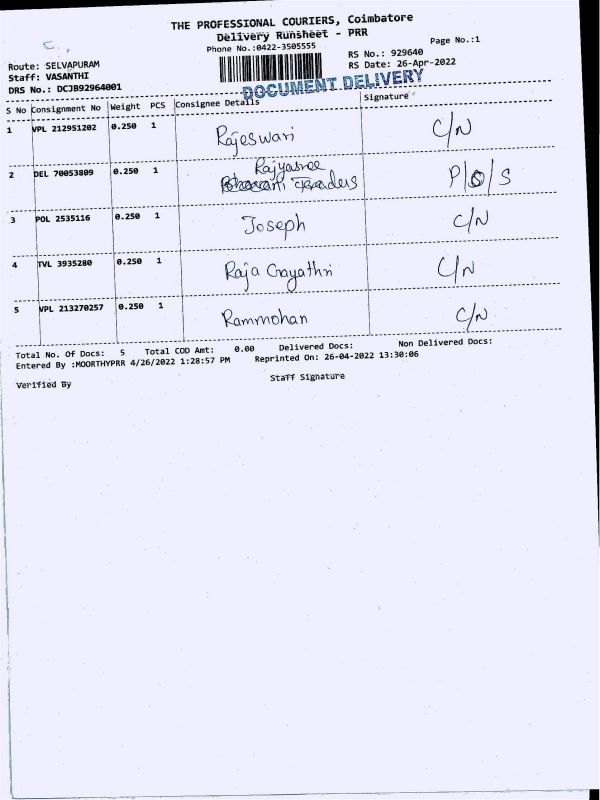 THE PROFESSIONAL COURIERS, Coimbatore
Delivery Runsheet - PRR
Phone No.:0422-3505555
Page No.:1
Route: SELVAPURAM
Staff: VASANTHI
DRS No.: DCJB92964001
RS No.: 929640
RS Date: 26-Apr-2022
DOCUMENT DELIVERY
S No Consignment No Weight PCS Consignee Details Signature
1 VPL 212951202 0.250 1 Rajeswari C/N
2 DEL 70053809 0.250 1 Rajyasree Traders P/S/S
3 POL 2535116 0.250 1 Joseph C/N
4 TVL 3935280 0.250 1 Raja Gayathri C/N
5 VPL 213270257 0.250 1 Rammohan C/N
Total No. Of Docs: 5 Total COD Amt: 0.00 Delivered Docs: Non Delivered Docs:
Entered By :MOORTHYPRR 4/26/2022 1:28:57 PM Reprinted On: 26-04-2022 13:30:06
Verified By Staff Signature